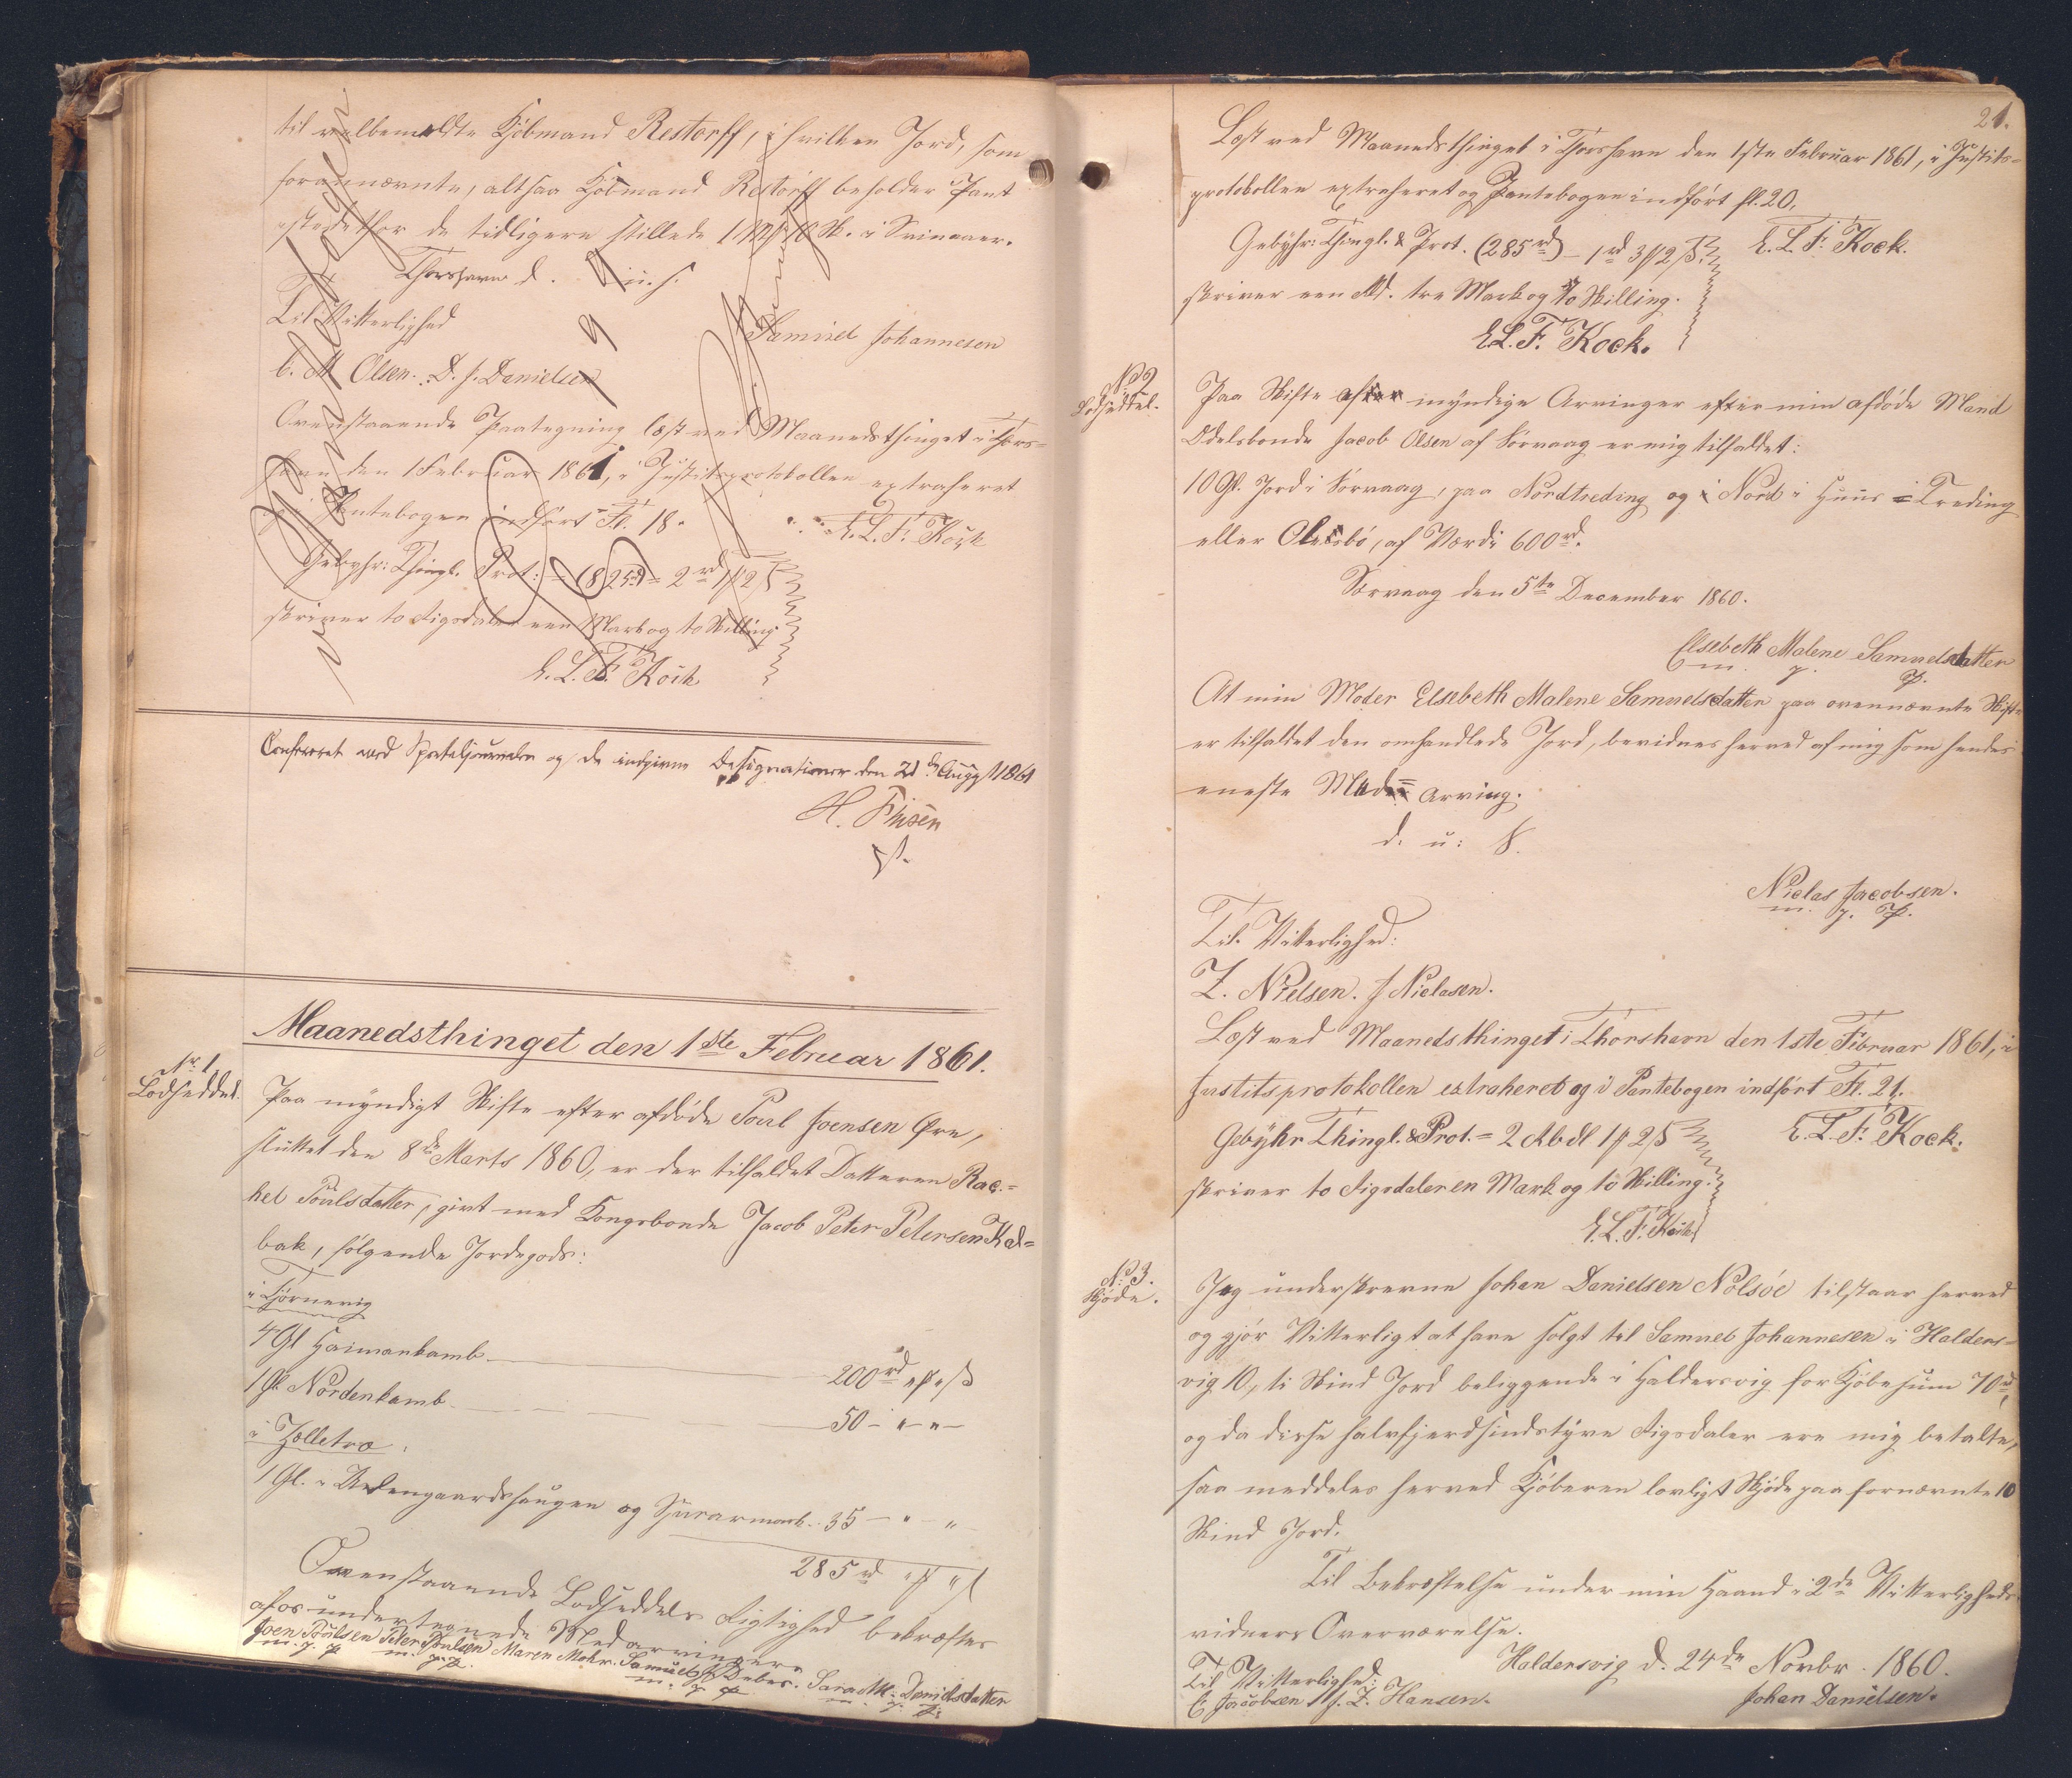 til velbemeldte Kjöbmand Restorff, i hvilken Jord, som
forannævnte, altsaa Kjöbmand Restorff beholder Pant
istedetfor de tidligere stillede i Svinaaer.
Thorshavn d. u. s.
Til Vitterlighed
Samuel Johannesen
C. M Olsen. D. J. Danielsen
Ovenstaaende Paategning læst ved Maanedsthinget i Thors-
havn den 1 Februar 1861, i Justitsprotokollen extraheret
og i Pantebogen indfört Fl. 18.
E. L. F. Kock
Gebyhr: Thingl. Prot: = (825rd) = 2rd 1 2
skriver to Rigsdaler een Mark og to Skilling
E. L. F. Kock
Confereret med Sporteljournalen og de indgivne Designationer den 21de August 1861
H. Finsen
Maanedsthinget den 1ste Februar 1861.
Nr. 1
Lodseddel.
Paa myndigt Skifte efter afdöde Poul Joensen Öre,
sluttet den 8de Marts 1860, er der tilfaldet Datteren Rac-
hel Poulsdatter, givt med Kongsbonde Jacob Peter Petersen Kal-
bak, fölgende Jordegods:
i Tjörnevig
4 Gl Haimankamb 200rd " "
1 Gl. Nordenkamb 50 - " - " -
i Hælletræ
1 Gl. i og 35 - " - "
285rd " "
Ovenstaaende Lodseddels Rigtighed bekræftes
af os undertegnede Medarvinger
Joen Poulsen Peter Poulsen Maren Mohr. Samuel J. Debes. Sara M. Danielsdatter
m. p. p m. p. p. m. p. p m. p. p.
21.
Læst ved Maanedsthinget i Thorshavn den 1ste Februar 1861, i Justits-
protokollen extraheret og i Pantebogen indfört fl. 20.
Gebyhr: Thingl. & Prot. (285rd) - 1rd 3 2 E. L. F. Kock.
skriver een Rd. tre Mark og to Skilling.
E. L. F. Kock.
No 2
Lodseddel.
Paa Skifte myndige Arvinger efter min afdöde Mand
Odelsbonde Jacob Olsen af Sörvaag er mig tilfaldet:
10 Gl. Jord i Sörvaag, paa Nordtreding og i Nord i Huus i Treding
eller af Værdi 600rd.
Sörvaag den 5te December 1860.
Elsebeth Malene Samuelsdatter
m. p. p.
At min Moder Elsebeth Malene Samuelsdatter paa ovennævnte Skifte
er tilfaldet den omhandlede Jord, bevidnes herved af mig som hendes
eneste Med= Arving.
d. u: S.
Niclas Jacobsen.
m. p. p.
Til Vitterlighed:
Z. Nielsen. J Niclasen.
Læst ved Maanedsthinget i Thorshavn den 1ste Februar 1861, i
Justitsprotokollen extraheret og i Pantebogen indfört Fl. 21.
Gebyhr Thingl. & Prot. = 2 Rbdl 1 2 E. L. F. Kock.
skriver to Rigsdaler en Mark og to Skilling.
E. L. F. Kock
No 3.
Skjöde.
Jeg underskrevne Johan Danielsen Nolsöe tilstaar herved
og gjör Vitterligt at have solgt til Samuel Johannesen i Halders-
vig 10, ti Skind Jord beliggende i Haldersvig for Kjöbesum 70rd,
og da disse halvfjerdsindstyve Rigsdaler ere mig betalte,
saa meddeles herved Kjöberen lovligt Skjöde paa fornævnte 10
Skind Jord.
Til Bekræftelse under min Haand i 2de Vitterligheds-
vidners Overværelse.
Haldersvig d. 24de Novbr. 1860.
Til Vitterlighed:
E Jacobsen J. Z. Hansen. Johan Danielsen.